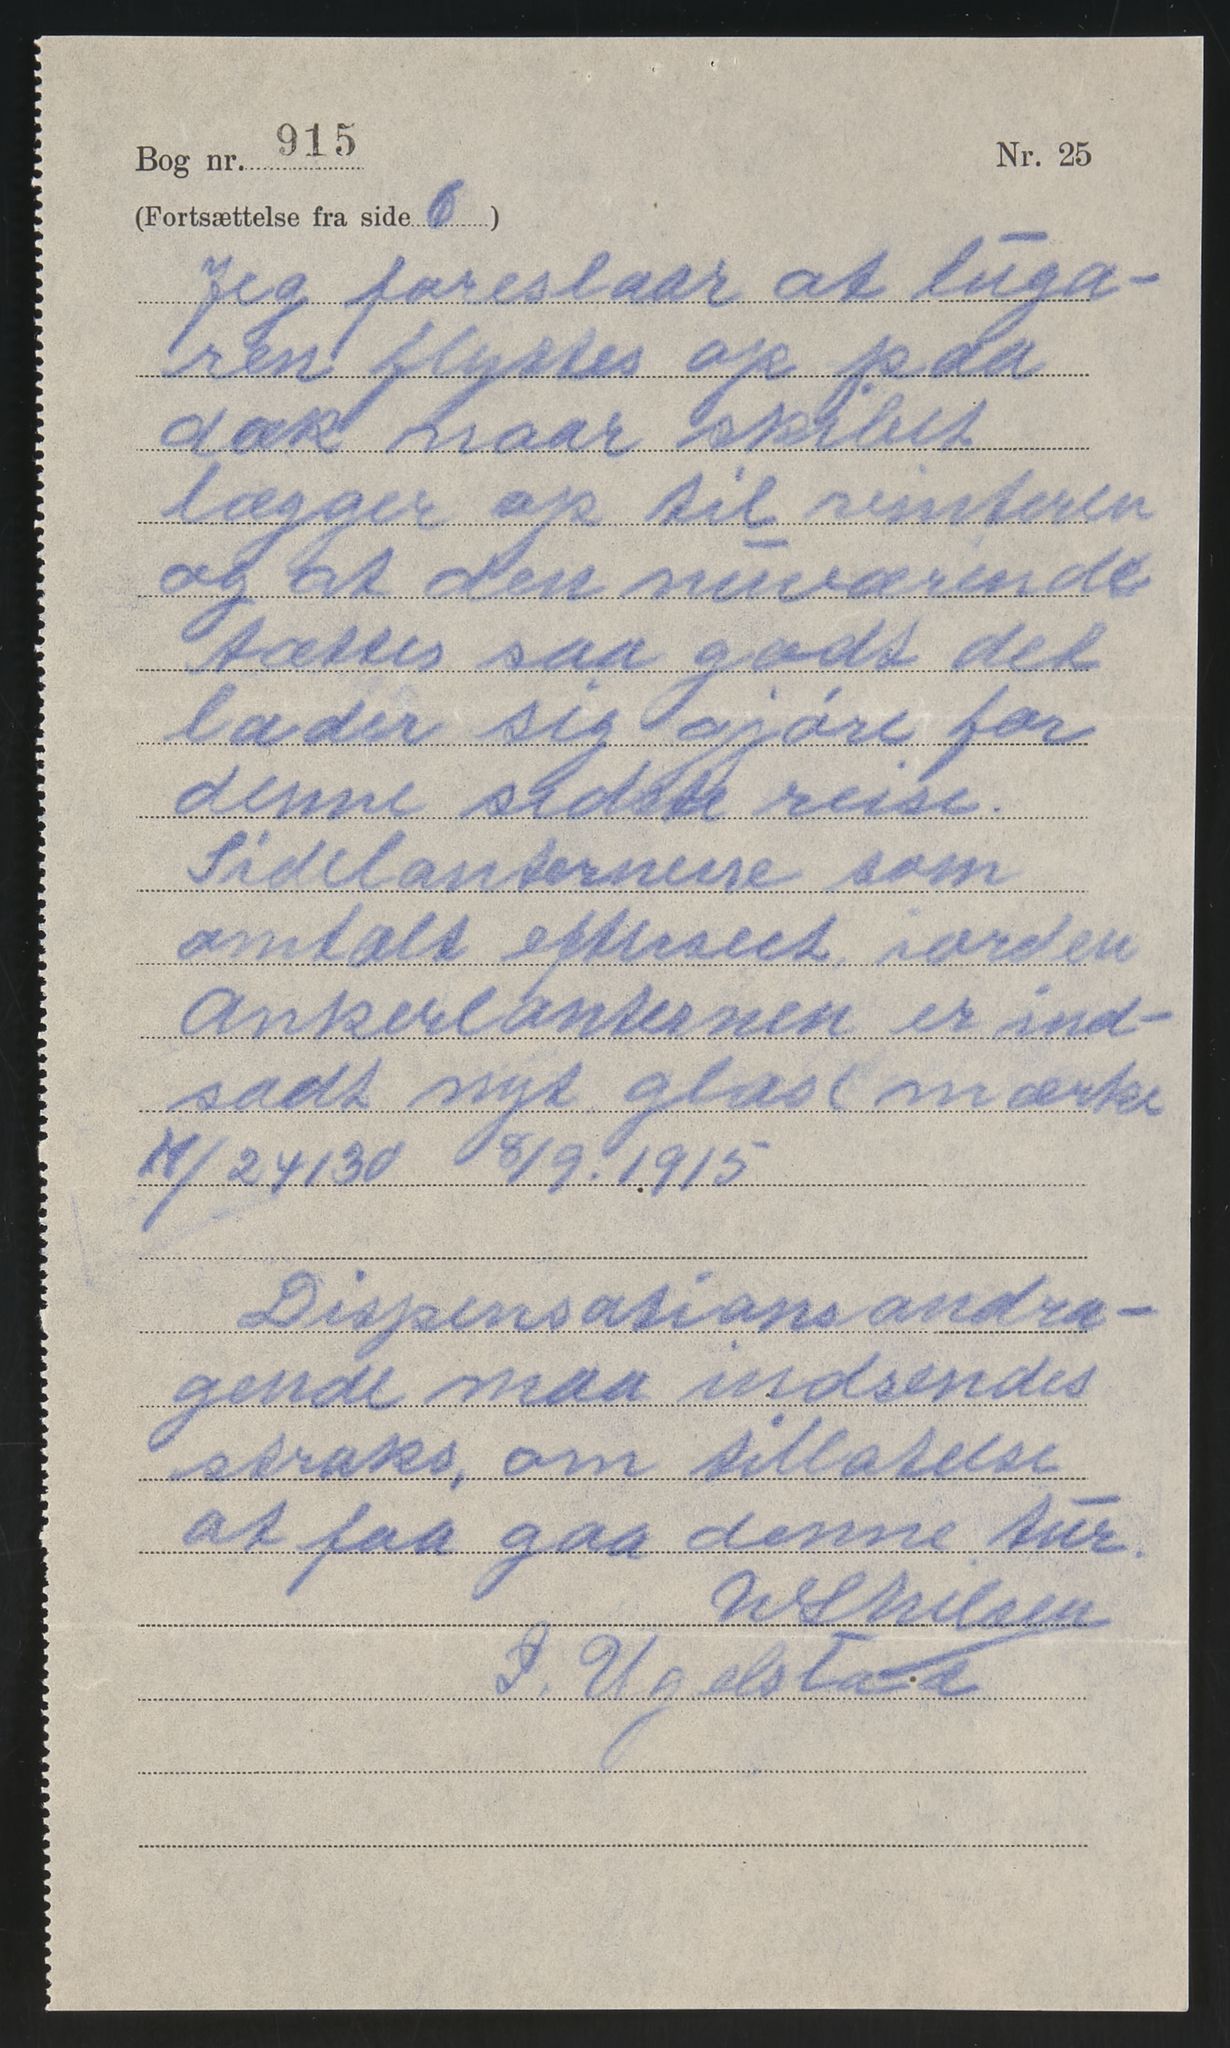 Bog nr. 915 Nr. 25
(Fortsættelse fra side 6)
Jeg foreslaar at luga-
ren flyttes op paa
dæk naar skibet
lægger op til vinteren
og at den nuværende
tættes saa godt det
lader sig gjöre for
denne sidste reise.
Sidelanternene som
omtalt efterseet iorden
Ankerlanternen er ind-
sadt nyt glas (mærke
N/24130 8/9.1915
Dispensationsandra-
gende maa indsendes
straks, om tillatelse
at faa gaa denne tur.
Nilsen
I. Ugelstad